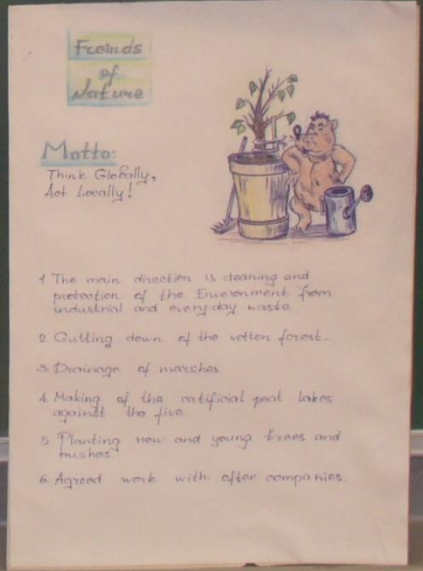 Freinds
of
Nature
Motto:
Think Globally,
Act Locally!
1. The main direction is cleaning and
protection of the Environment from
industrial and everyday waste.
2. Cutting down of the rotten forest.
3. Drainage of marshes
4. Making of the artificial peat lakes
against the fire.
5. Planting new and young trees and
bushes.
6. Agreed work with after companies.